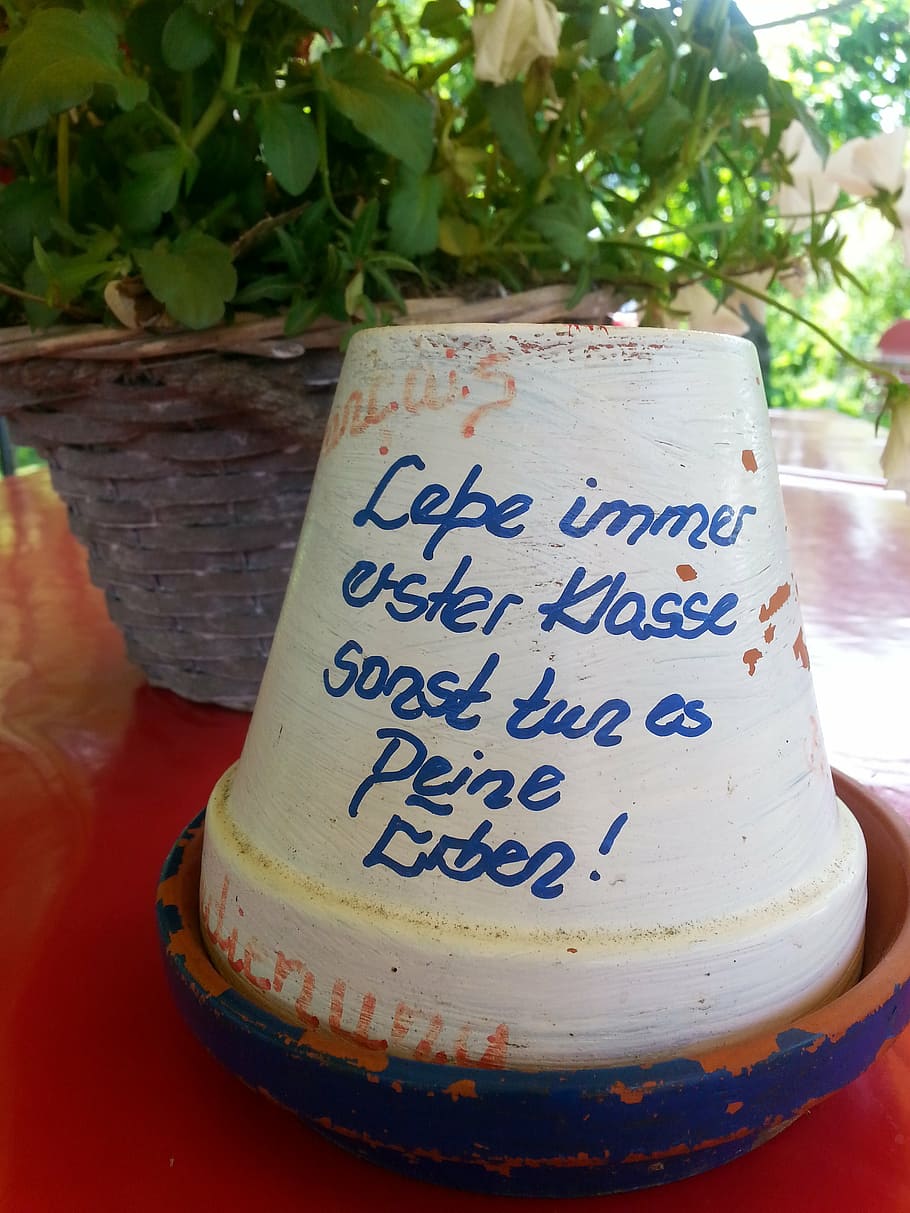 Lebe immer
erster Klasse
sonst tun es
Deine
Erben!